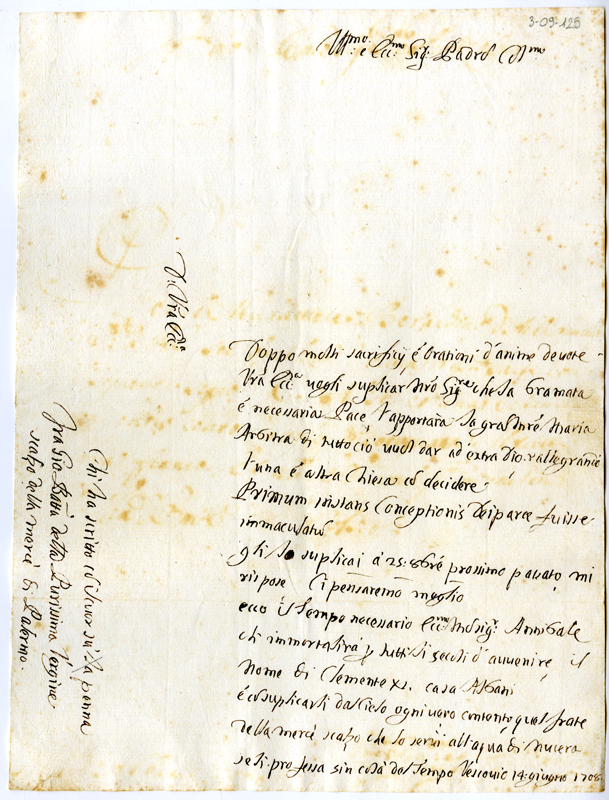 3-09-125
Ill.mo e Ecc.mo Sig.r Padro
Doppo molti sacrificij, é Orationi d'anime devote
Vrã Ecc.a vogli suplicar Nrõ Sig.re che la bramata
é necessaria Pace, l'apportarà la gra Maria
Arbitra di tutto ció vuol dar ad extra Dio,
l'una é altra Chiesa cõ decidere
Primum instans Conceptionis Deiparæ fuisse
immaculatũ
gli lo suplicai á 25: 8bré prossimo passato, mi
rispose Ci pensaremo meglio
ecco il tempo necessario Ecc.mo Mõsig.r Annibale
di immortalirá p tutti li secoli d'avvenire il
Nome di Clemente XI. casa Albani
é cõ suplicarli dal Cielo ogni vero contento qual frate
della mercé scalzo che lo servì all'aqua di Nucera
se li professa sin colà dal tempo Vescovio 14: giugno 1708
D: Vrã Ecc.a
Chi ha scritto cõ la penna
Fra Gio: Batta della Purissima Vergine
scalzo della mercé di Palermo.